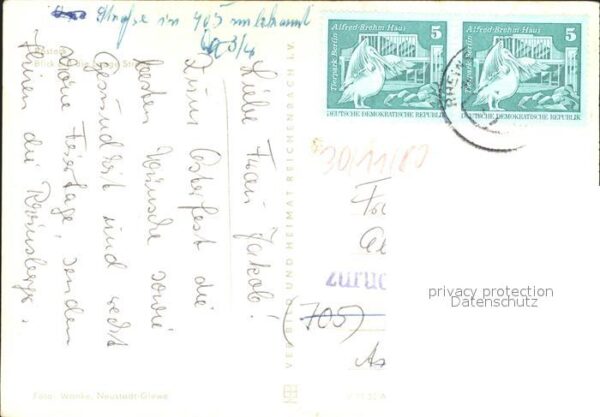 Straße in 705 unbekannt
Liebe Frau Jakob!
Zum Osterfest die
besten Wünsche sowie
Gesundheit und recht
schöne Feiertage, senden
Ihnen die
Blick
VERLAG BILD UND HEIMAT REICHENBACH I. V.
Foto: Wanke, Neustadt-Glewe
Alfred-Brehm Haus 5
Tierpark Berlin
DEUTSCHE DEMOKRATISCHE REPUBLIK
Alfred-Brehm Haus 5
Tierpark Berlin
DEUTSCHE DEMOKRATISCHE REPUBLIK
30/11/80
Fr
zurüc
(705)
privacy protection
Datenschutz